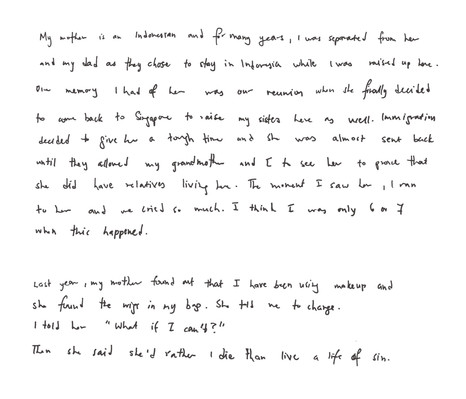 My mother is an Indonesian and for many years, I was separated from her
and my dad as they chose to stay in Indonesia while I was raised up here.
One memory I had of her was our reunion when she finally decided
to come back to Singapore to raise my sister here as well. Immigration
decided to give her a tough time and she was almost sent back
until they allowed my grandmother and I to see her to prove that
she did have relatives living here. The moment I saw her, I ran
to her and we cried so much. I think I was only 6 or 7
when this happened.
Last year, my mother found out that I have been using makeup and
she found the wigs in my bag. She told me to change.
I told her "What if I can't?"
Then she said she'd rather I die than live a life of sin.